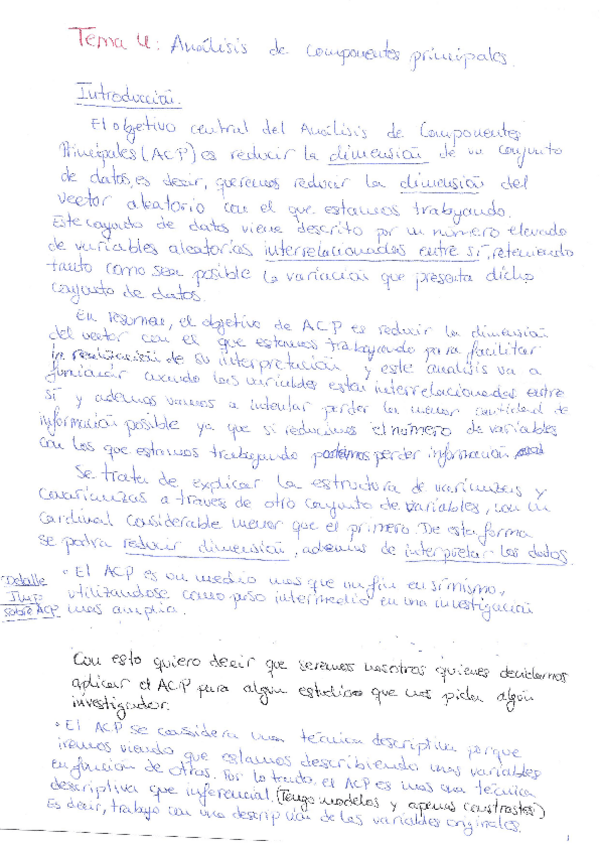 Tema 4: Análisis de componentes principales.
Introducción.
El objetivo central del Análisis de Componentes
Principales (ACP) es reducir la dimensión de un conjunto
de datos, es decir, queremos reducir la dimensión del
vector aleatorio con el que estamos trabajando.
Este conjunto de datos viene descrito por un número elevado
de variables aleatorias interrelacionadas entre sí, reteniendo
tanto como sea posible la variación que presenta dicho
conjunto de datos.
En resumen, el objetivo de ACP es reducir la dimensión
del vector con el que estamos trabajando para facilitar
la realización de su interpretación, y este análisis va a
funcionar cuando las variables estén interrelacionadas entre
sí y además vamos a intentar perder la menor cantidad de
información posible ya que si reducimos el número de variables
con los que estamos trabajando podemos perder información
Se trata de explicar la estructura de varianzas y
covarianzas a través de otro conjunto de variables, con un
cardinal considerable menor que el primero. De esta forma
se podrá reducir dimensión, además de interpretar los datos.
Detalle
Imp.
sobre ACP
• El ACP es un medio mas que un fin en si mismo,
utilizandose como paso intermedio en una investigación
mas amplia.
Con esto quiero decir que seremos nosotros quienes decidamos
aplicar el ACP para algun estudio que nos pida algún
investigador.
• El ACP se considera una técnica descriptiva porque
iremos viendo que estamos describiendo unas variables
en función de otras. Por lo tanto, el ACP es mas una técnica
descriptiva que inferencial. (Tengo modelos y apenas contrastes)
Es decir, trabajo con una descripción de las variables originales.